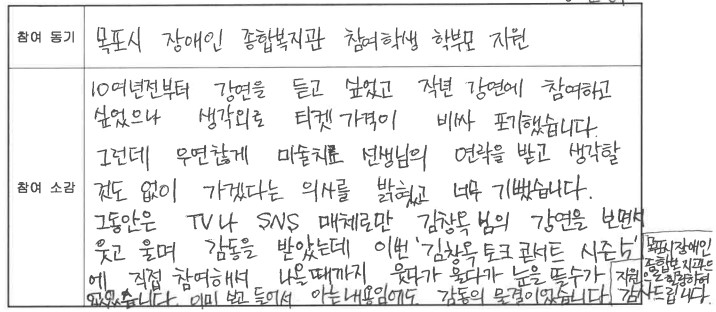 참여 동기
목포시 장애인 종합복지관 참여학생 학부모 지원
참여 소감
10여년전부터 강연을 듣고 싶었고 작년 강연에 참여하고
싶었으나 생각외로 티켓 가격이 비싸 포기했습니다.
그런데 우연찮게 미술치료 선생님의 연락을 받고 생각할
것도 없이 가겠다는 의사를 밝혔고 너무 기뻤습니다.
그동안은 TV나 SNS 매체로만 김창옥님의 강연을 보면서
웃고 울며 감동을 받았는데 이번 '김창옥 토크 콘서트 시즌5'
에 직접 참여해서 나올때까지 웃다가 울다가 눈을 뗄수가
없었습니다. 이미 보고 들어서 아는내용임에도 감동의 물결이었습니다
목포시장애인
종합복지관의
지원
감사드립니다.